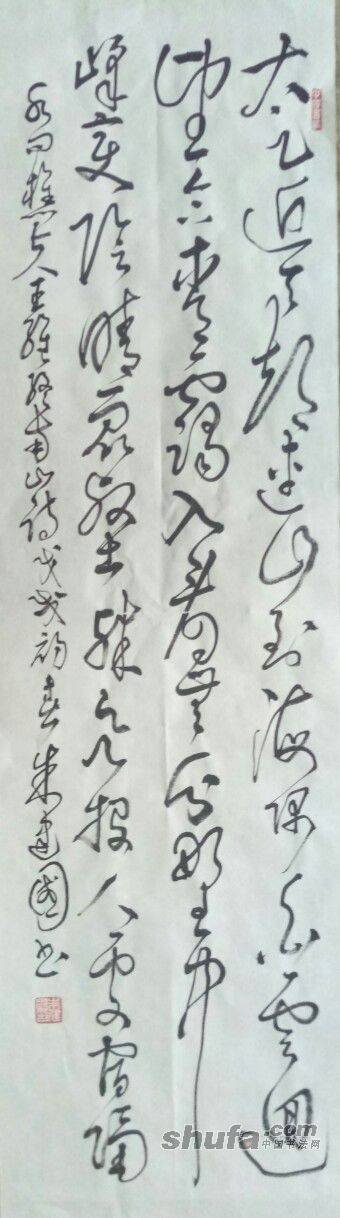 太乙近天都連山到海隅白雲迴
望合青靄入看無分野中
峰變陰晴衆壑殊欲投人處宿隔
水问樵夫王維終南山詩戊戌初春朱建國书
shufa.com
中国书法网